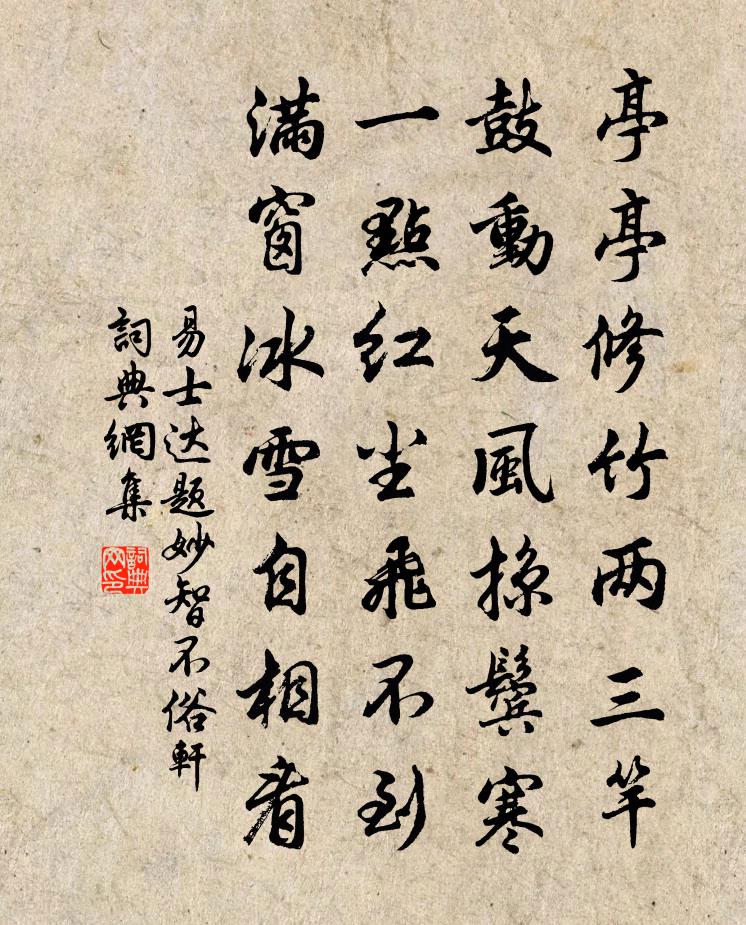 亭亭修竹两三竿
鼓動天風掠鬢寒
一點紅尘飛不到
满窗冰雪自相看
易士达题妙智不俗軒
詞典網集
詞典网印